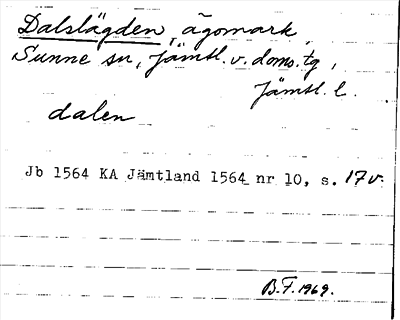 Dalslägden, ägomark
Sunne sn, Jämtl. v. doms. tg,
Jämtl. l.
dalen
Jb 1564 KA Jämtland 1564 nr 10, s. 17v.
B.F. 1969.